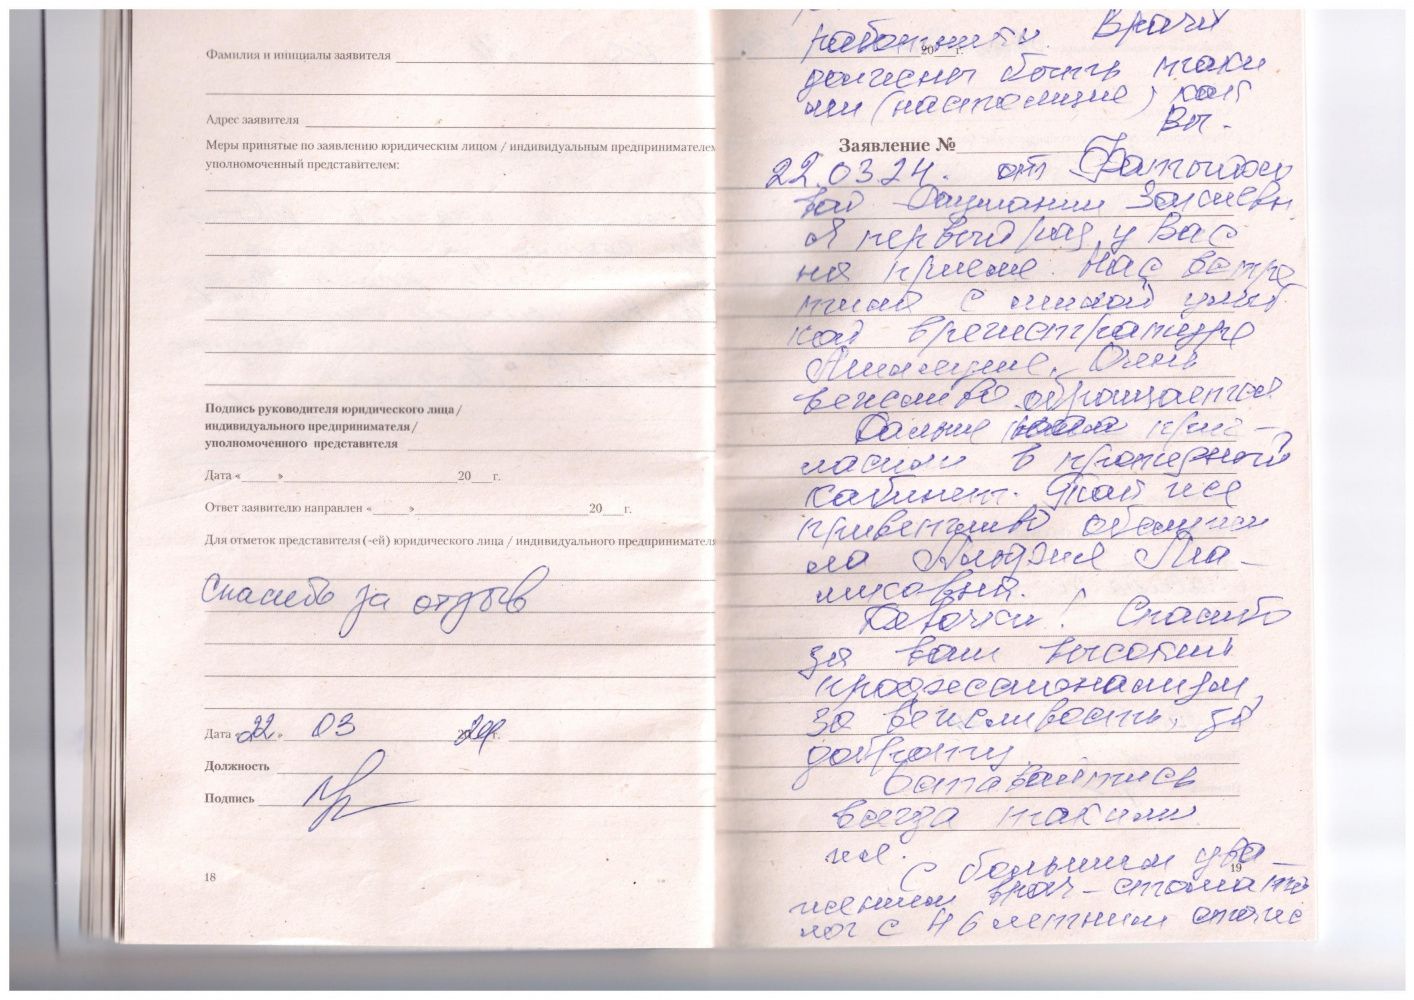 Фамилия и инициалы заявителя
Адрес заявителя
Меры принятые по заявлению юридическим лицом / индивидуальным предпринимателем
уполномоченный представителем:
Подпись руководителя юридического лица /
индивидуального предпринимателя /
уполномоченного представителя
Дата « » 20 г.
Ответ заявителю направлен « » 20 г.
Для отметок представителя (-ей) юридического лица / индивидуального предпринимателя
Спасибо за отзыв
Дата «22» 03 2024 г.
Должность
Подпись
18
Врачи
20 г.
должны быть таки
ми (настоящие) как
Вы.
Заявление №
22.03.24. от
Я первый раз у Вас
на приеме. Нас встре
тила с милой улыб
кой в регистратуре
Очень
вежливо обращается
Дальше приг-
ласили в
кабинет. Такой же
приветливо обслужи
ла
Девочки! Спасибо
за ваш высокий
профессионализм
за вежливость, за
доброту.
Оставайтесь
всегда такими
же.
С большим ува-
19
жением врач-стомато
лог с 46 летним стажем